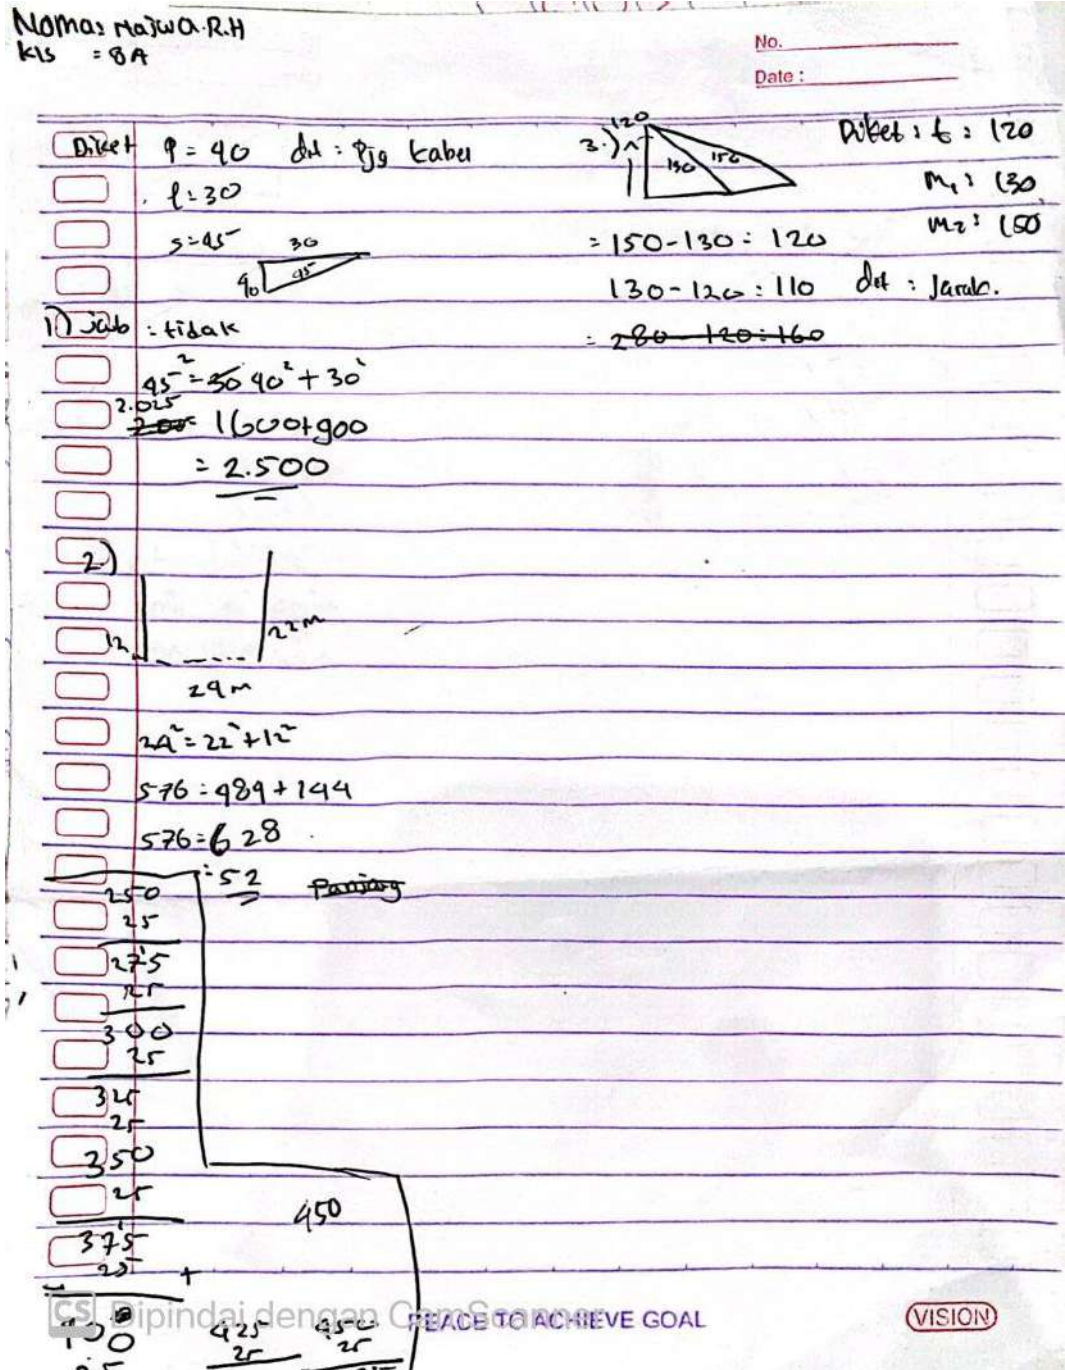 Nama: Najwa.R.H
Kls = 8A
No.
Date :
Diket P = 40 dit : Pjg kabel
l = 30
s = 45
30
40
45
1) jab : tidak
45² = 30 40² + 30²
2.025
200 = 1600+900
= 2.500
2)
12
22m
24m
24² = 22² + 12²
576 = 484 + 144
576 = 628
= 52 Panjang
250
25
275
25
300
25
325
25
350
25
375
25 +
400
25
450
425
25
450
25
3.)
120
130
150
Diket : t : 120
m₁ : 130
m₂ : 150
= 150-130 = 120
130-120 = 110 dit : Jarak.
= 280-120 = 160
CS Dipindai dengan CamScanner
PEACE TO ACHIEVE GOAL
VISION